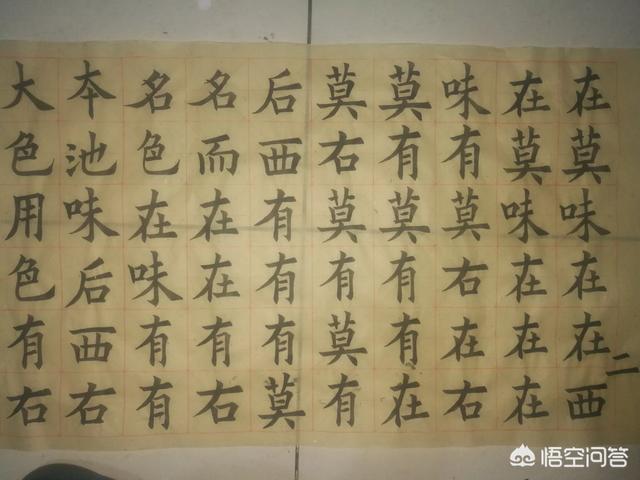 二
在莫味在在西
在莫味在在在
味有莫右在右
莫有莫有有在
莫右莫有莫有
后西有有有莫
名而在在有右
名色在味有有
本池味后西右
大色用色有右
悟空问答